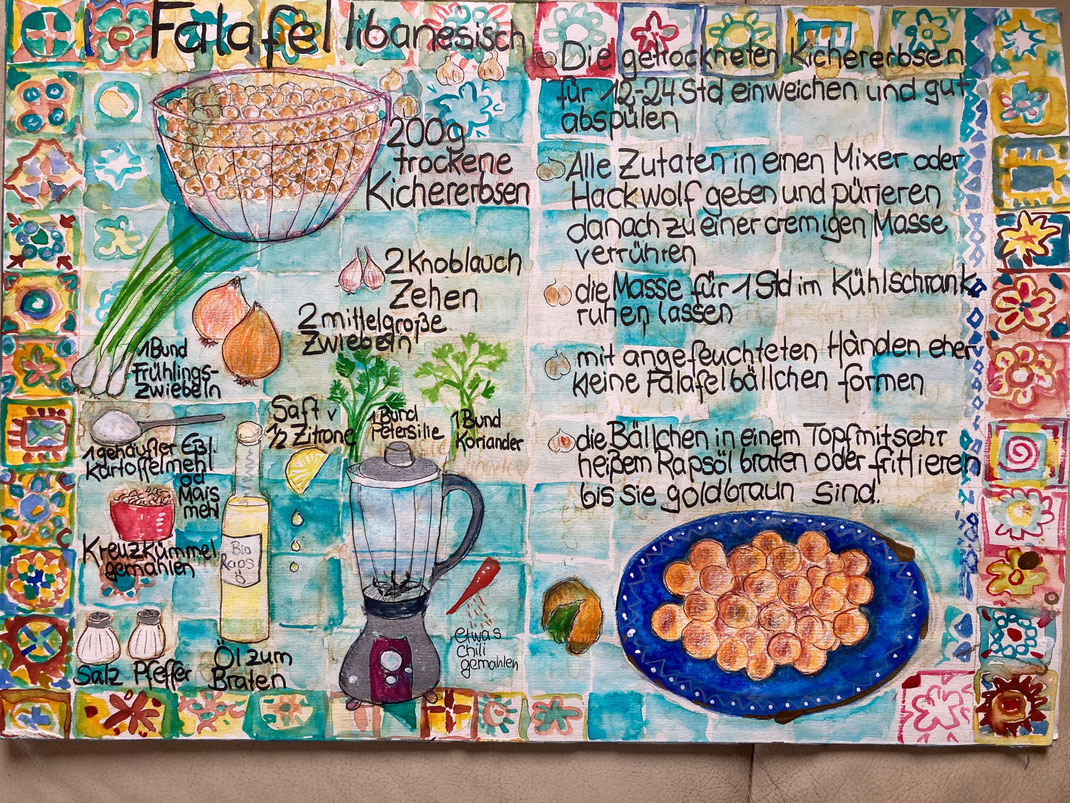 Falafel libanesisch
200g
trockene
Kichererbsen
2 Knoblauch
Zehen
2 mittelgroße
Zwiebeln
1 Bund
Frühlings-
zwiebeln
Saft v
1/2 Zitrone
1 Bund
Petersilie
1 Bund
Koriander
1 gehäufter Eßl.
Kartoffelmehl
od
Mais
mehl
Kreuzkümmel
gemahlen
Bio
Raps
Öl
Salz Pfeffer
Öl zum
Braten
etwas
Chili
gemahlen
Die getrockneten Kichererbsen
für 12-24 Std einweichen und gut
abspülen
Alle Zutaten in einen Mixer oder
Hackwolf geben und pürieren
danach zu einer cremigen Masse
verrühren
die Masse für 1 Std im Kühlschrank
ruhen lassen
mit angefeuchteten Händen eher
kleine Falafelbällchen formen
die Bällchen in einem Topf mit sehr
heißem Rapsöl braten oder frittieren
bis sie goldbraun sind.